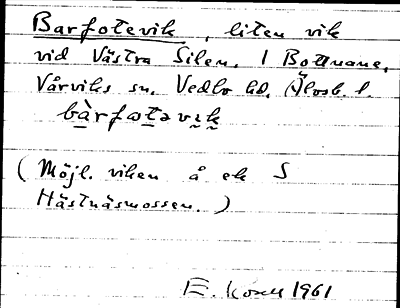 Barfotevik, liten vik
vid Västra Silen, I Bottnane,
Vårviks sn, Vedbo hd, Älvsb. l.
bàrfɷtəvɪk
(Möjl. viken å ek S
Hästnäsmossen.)
E. 1961